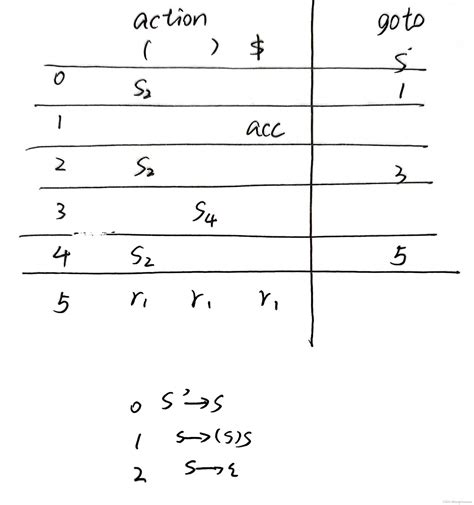 action goto
( ) $ S
0 S₂ 1
1 acc
2 S₂ 3
3 S₄
4 S₂ 5
5 r₁ r₁ r₁
0 S'→S
1 S→(S)S
2 S→ε